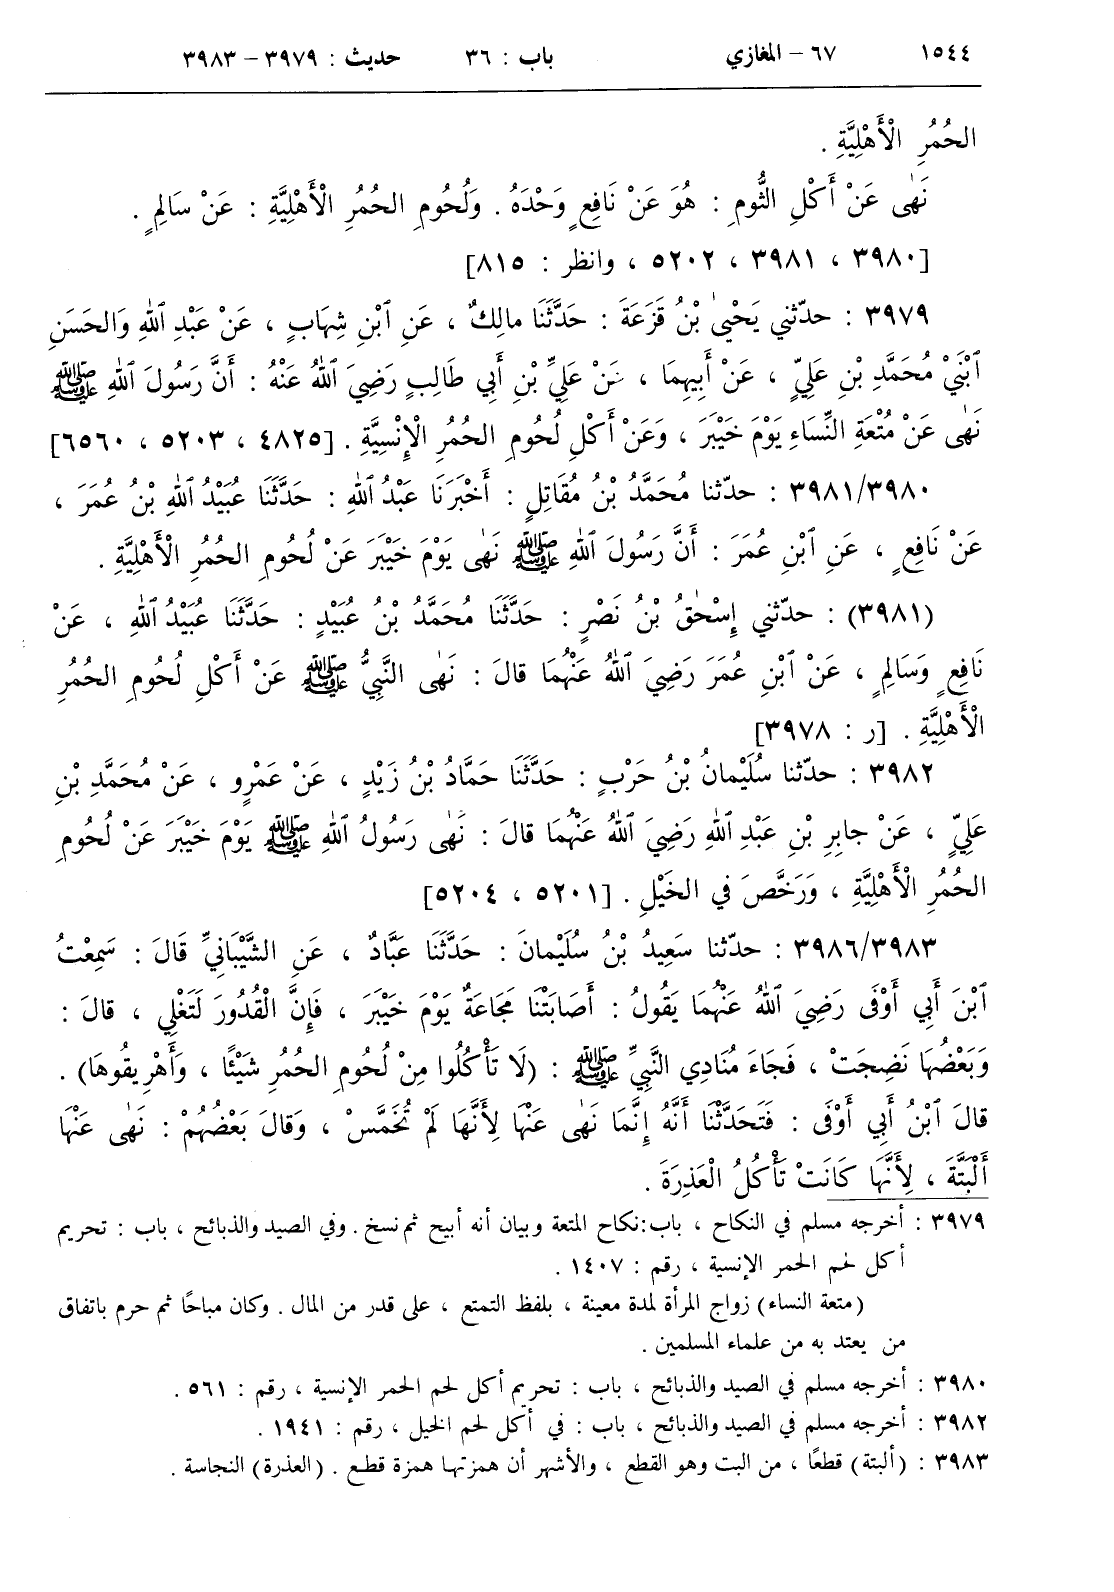 ١٥٤٤ ٦٧ – المغازي باب : ٣٦ حديث : ٣٩٧٩ – ٣٩٨٣
الحُمُرِ الْأَهْلِيَّةِ .
نَهٰى عَنْ أَكْلِ الثُّومِ : هُوَ عَنْ نَافِعٍ وَحْدَهُ . وَلُحُومِ الحُمُرِ الْأَهْلِيَّةِ : عَنْ سَالِمٍ .
[٣٩٨٠ ، ٣٩٨١ ، ٥٢٠٢ ، وانظر : ٨١٥]
٣٩٧٩ : حدّثني يَحْيىٰ بْنُ قَزَعَةَ : حَدَّثَنَا مالِكٌ ، عَنِ ٱبْنِ شِهَابٍ ، عَنْ عَبْدِ ٱللهِ وَالحَسَنِ
ٱبْنَيْ مُحَمَّدِ بْنِ عَلِيٍّ ، عَنْ أَبِيهِمَا ، عَنْ عَلِيِّ بْنِ أَبِي طَالِبٍ رَضِيَ ٱللهُ عَنْهُ : أَنَّ رَسُولَ ٱللهِ ﷺ
نَهٰى عَنْ مُتْعَةِ النِّسَاءِ يَوْمَ خَيْبَرَ ، وَعَنْ أَكْلِ لُحُومِ الحُمُرِ الْإِنْسِيَّةِ . [٤٨٢٥ ، ٥٢٠٣ ، ٦٥٦٠]
٣٩٨١/٣٩٨٠ : حدّثنا مُحَمَّدُ بْنُ مُقَاتِلٍ : أَخْبَرَنَا عَبْدُ ٱللهِ : حَدَّثَنَا عُبَيْدُ ٱللهِ بْنُ عُمَرَ ،
عَنْ نَافِعٍ ، عَنِ ٱبْنِ عُمَرَ : أَنَّ رَسُولَ ٱللهِ ﷺ نَهٰى يَوْمَ خَيْبَرَ عَنْ لُحُومِ الحُمُرِ الْأَهْلِيَّةِ .
(٣٩٨١) : حدّثني إِسْحٰقُ بْنُ نَصْرٍ : حَدَّثَنَا مُحَمَّدُ بْنُ عُبَيْدٍ : حَدَّثَنَا عُبَيْدُ ٱللهِ ، عَنْ
نَافِعٍ وَسَالِمٍ ، عَنْ ٱبْنِ عُمَرَ رَضِيَ ٱللهُ عَنْهُمَا قالَ : نَهٰى النَّبِيُّ ﷺ عَنْ أَكْلِ لُحُومِ الحُمُرِ
الْأَهْلِيَّةِ . [ر : ٣٩٧٨]
٣٩٨٢ : حدّثنا سُلَيْمانُ بْنُ حَرْبٍ : حَدَّثَنَا حَمَّادُ بْنُ زَيْدٍ ، عَنْ عَمْرٍو ، عَنْ مُحَمَّدِ بْنِ
عَلِيٍّ ، عَنْ جابِرِ بْنِ عَبْدِ ٱللهِ رَضِيَ ٱللهُ عَنْهُمَا قالَ : نَهٰى رَسُولُ ٱللهِ ﷺ يَوْمَ خَيْبَرَ عَنْ لُحُومِ
الحُمُرِ الْأَهْلِيَّةِ ، وَرَخَّصَ في الخَيْلِ . [٥٢٠١ ، ٥٢٠٤]
٣٩٨٦/٣٩٨٣ : حدّثنا سَعِيدُ بْنُ سُلَيْمانَ : حَدَّثَنَا عَبَّادٌ ، عَنِ الشَّيْبَانِيِّ قَالَ : سَمِعْتُ
ٱبْنَ أَبِي أَوْفَى رَضِيَ ٱللهُ عَنْهُمَا يَقُولُ : أَصَابَتْنَا مَجَاعَةٌ يَوْمَ خَيْبَرَ ، فَإِنَّ الْقُدُورَ لَتَغْلِي ، قالَ :
وَبَعْضُهَا نَضِجَتْ ، فَجَاءَ مُنَادِي النَّبِيِّ ﷺ : (لَا تَأْكُلُوا مِنْ لُحُومِ الحُمُرِ شَيْئًا ، وَأَهْرِيقُوهَا) .
قالَ ٱبْنُ أَبِي أَوْفَى : فَتَحَدَّثْنَا أَنَّهُ إِنَّمَا نَهٰى عَنْهَا لِأَنَّهَا لَمْ تُخَمَّسْ ، وَقالَ بَعْضُهُمْ : نَهٰى عَنْهَا
أَلْبَتَّةَ ، لِأَنَّهَا كَانَتْ تَأْكُلُ الْعَذِرَةَ .
٣٩٧٩ : أخرجه مسلم في النكاح ، باب:نكاح المتعة وبيان أنه أبيح ثم نسخ . وفي الصيد والذبائح ، باب : تحريم
أكل لحم الحمر الإنسية ، رقم : ١٤٠٧ .
(متعة النساء) زواج المرأة لمدة معينة ، بلفظ التمتع ، على قدر من المال . وكان مباحًا ثم حرم باتفاق
من يعتد به من علماء المسلمين .
٣٩٨٠ : أخرجه مسلم في الصيد والذبائح ، باب : تحريم أكل لحم الحمر الإنسية ، رقم : ٥٦١ .
٣٩٨٢ : أخرجه مسلم في الصيد والذبائح ، باب : في أكل لحم الخيل ، رقم : ١٩٤١ .
٣٩٨٣ : (ألبتة) قطعًا ، من البت وهو القطع ، والأشهر أن همزتها همزة قطع . (العذرة) النجاسة .